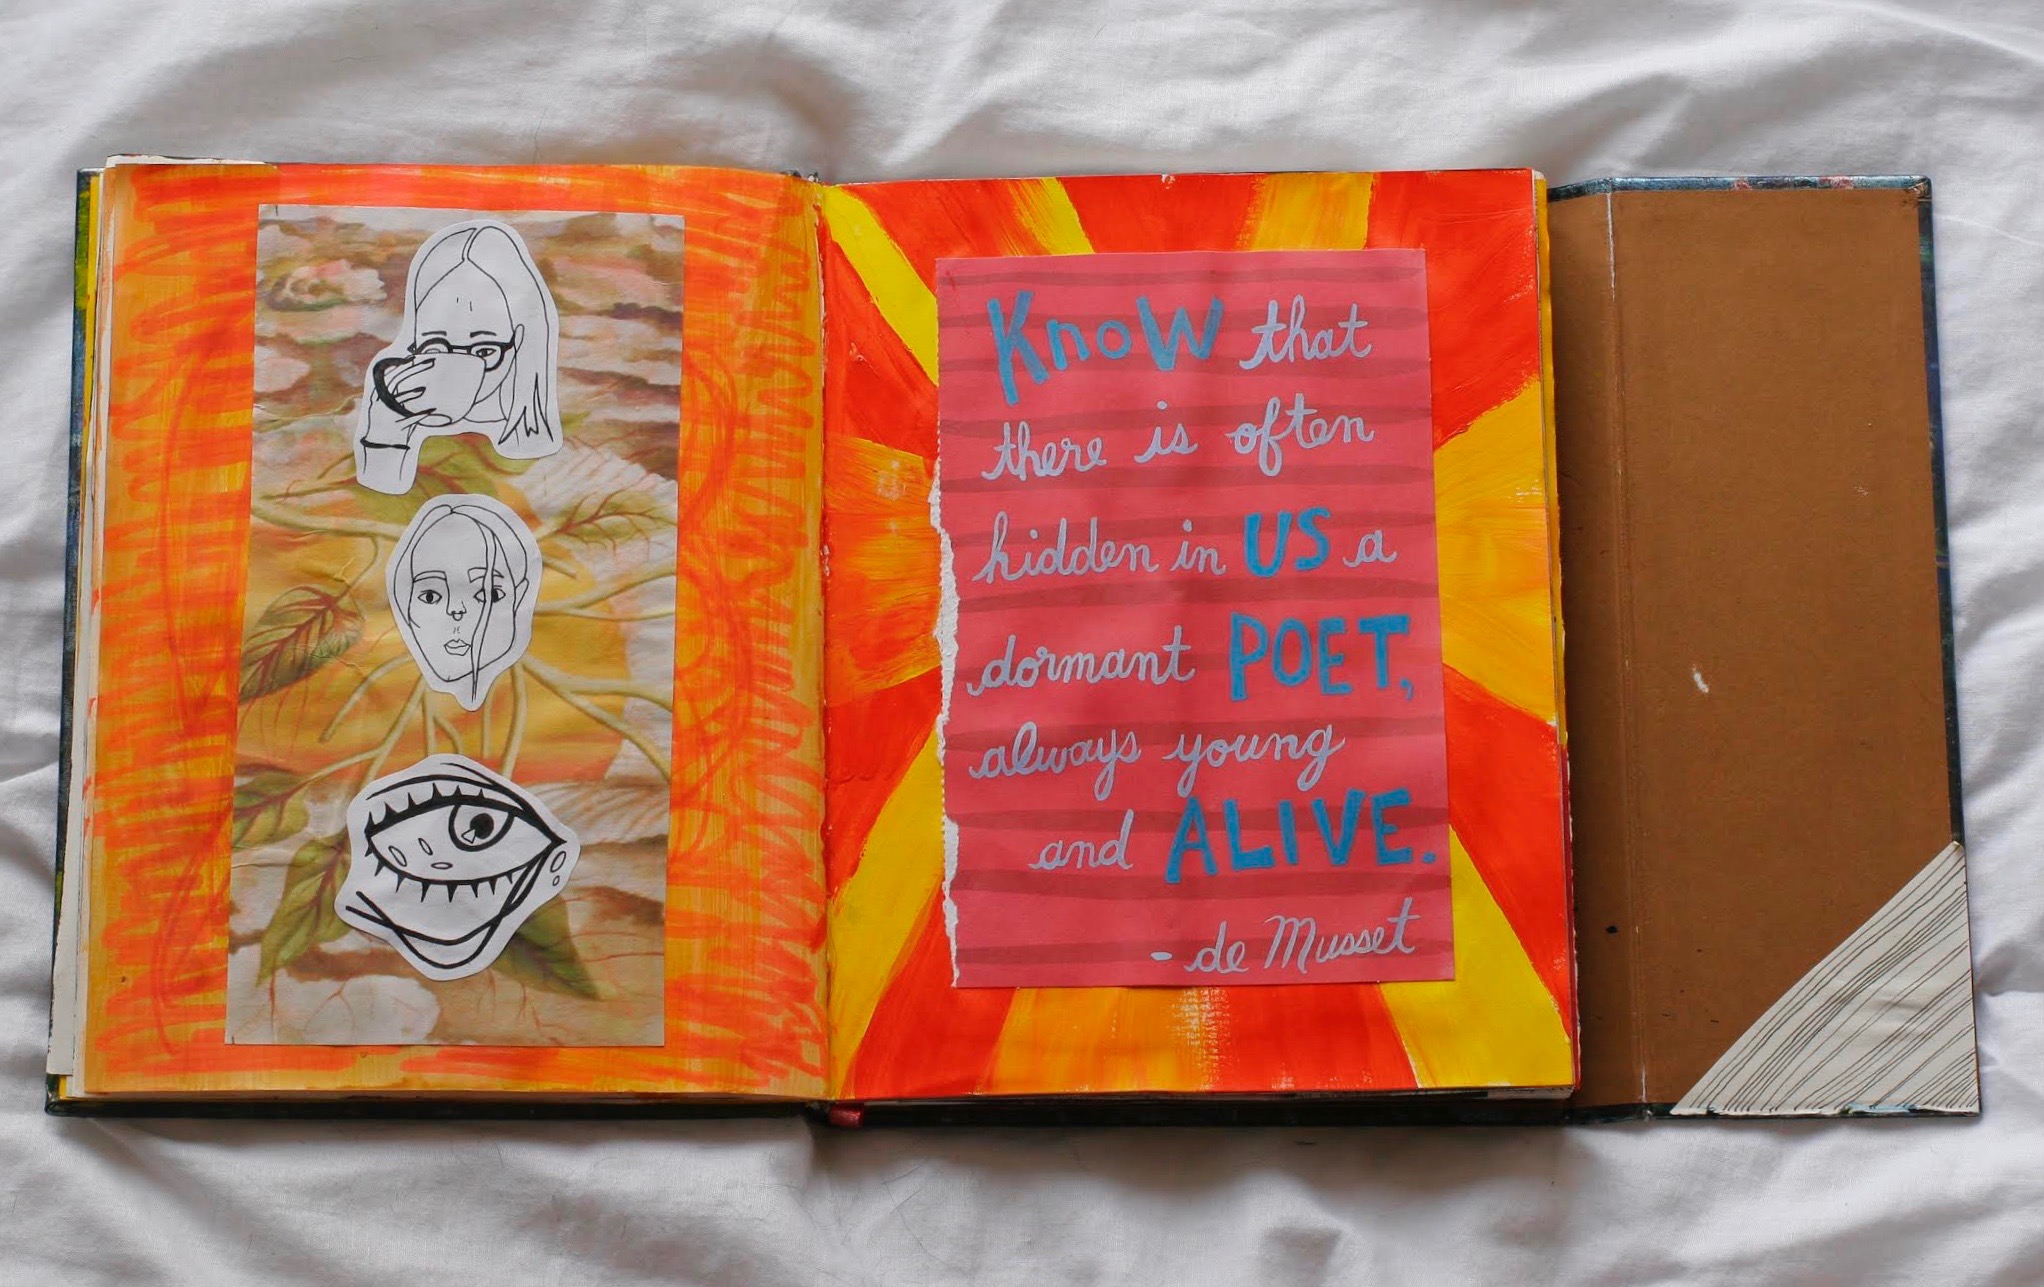 KnoW that
there is often
hidden in US a
dormant POET,
always young
and ALIVE.
- de Musset